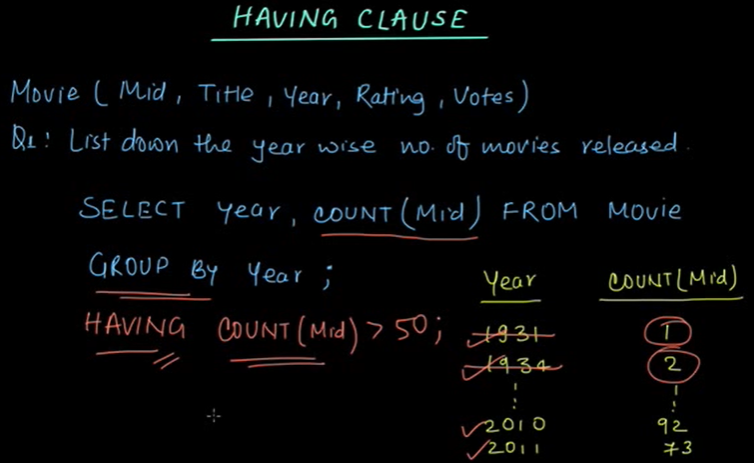 HAVING CLAUSE
Movie ( Mid, Title, Year, Rating, Votes)
Q1: List down the year wise no. of movies released.
SELECT Year, COUNT(Mid) FROM Movie
GROUP BY Year ;
HAVING COUNT(Mid) > 50;
Year COUNT(Mid)
1931 1
1934 2
2010 92
2011 73